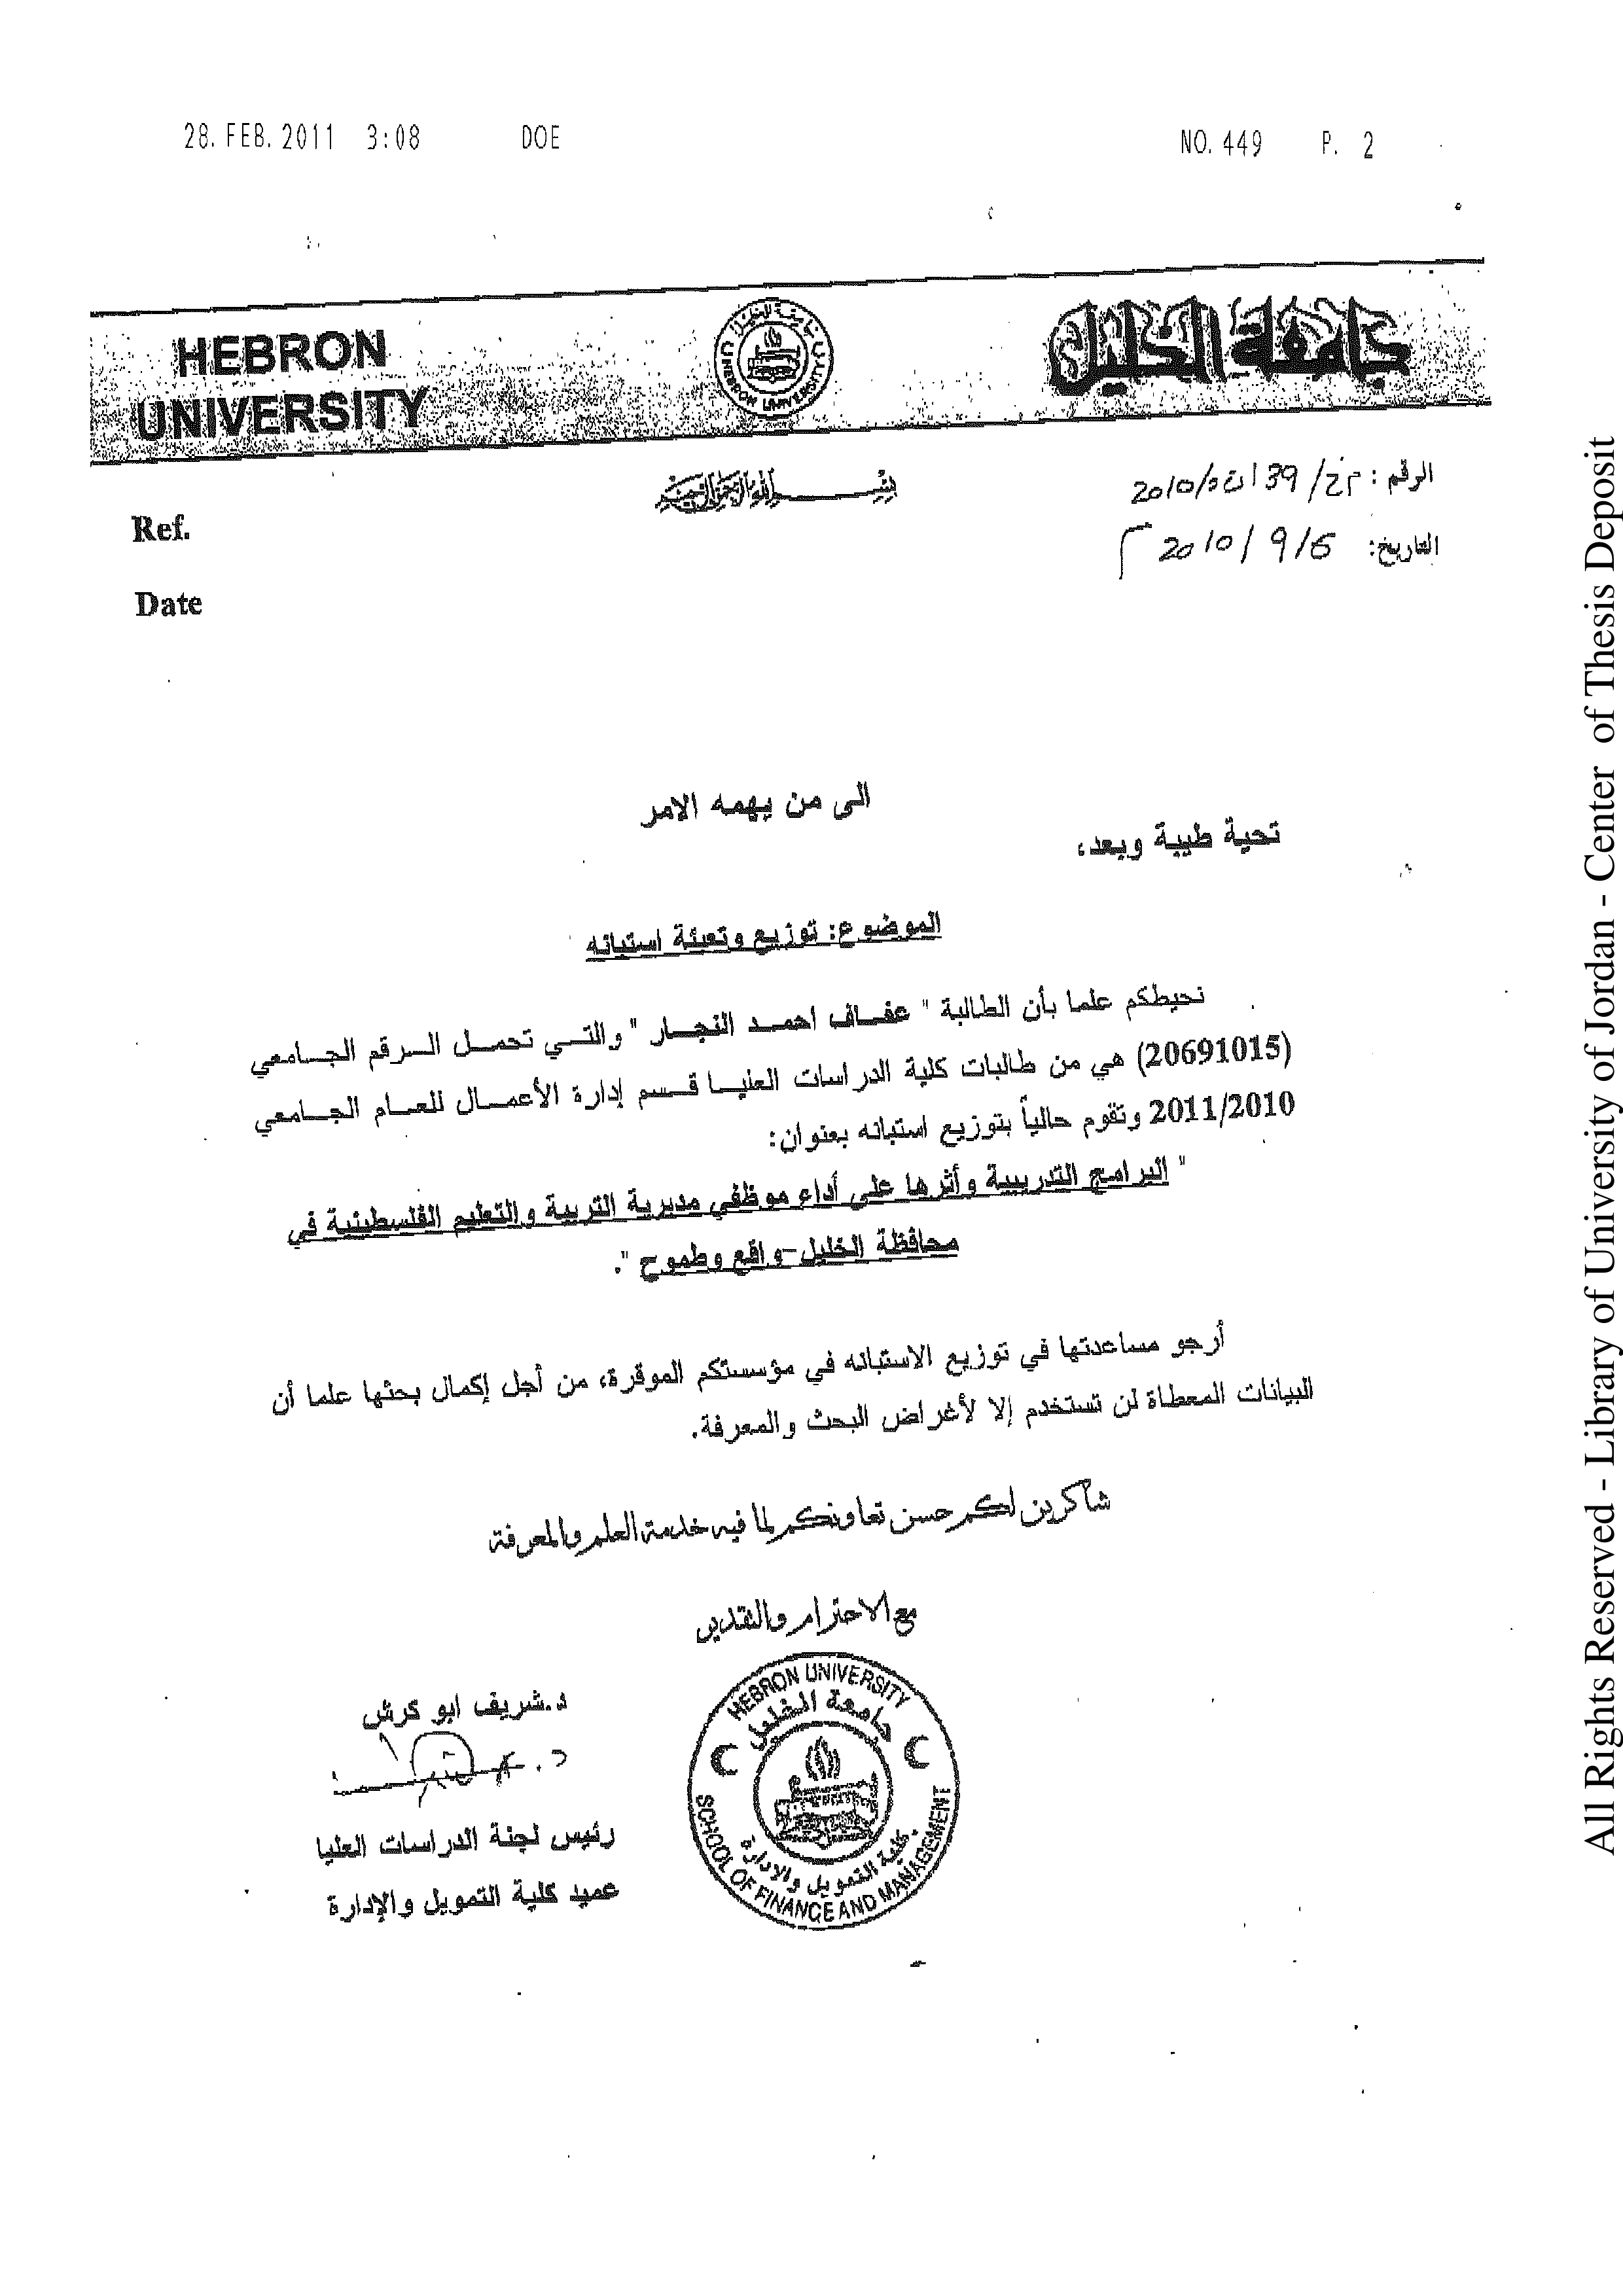 28. FEB. 2011 3:08 DOE NO. 449 P. 2
HEBRON
UNIVERSITY
جامعة الخليل
بسم الله الرحمن الرحيم
الرقم :
Ref.
التاريخ: 2010/9/5 م
Date
الى من يهمه الامر
تحية طيبة وبعد،
الموضوع: توزيع وتعبئة استبانه
نحيطكم علما بأن الطالبة " عفاف احمد النجار " والتي تحمل الرقم الجامعي
(20691015) هي من طالبات كلية الدراسات العليا قسم إدارة الأعمال للعام الجامعي
2011/2010 وتقوم حالياً بتوزيع استبانه بعنوان:
" البرامج التدريبية وأثرها على أداء موظفي مديرية التربية والتعليم الفلسطينية في
محافظة الخليل-واقع وطموح ".
أرجو مساعدتها في توزيع الاستبانه في مؤسستكم الموقرة، من أجل إكمال بحثها علما أن
البيانات المعطاة لن تستخدم إلا لأغراض البحث والمعرفة.
شاكرين لكم حسن تعاونكم لما فيه خدمة العلم والمعرفة
مع الاحترام والتقدير
د.شريف ابو كرش
رئيس لجنة الدراسات العليا
عميد كلية التمويل والإدارة
HEBRON UNIVERSITY
جامعة الخليل
كلية التمويل والادارة
SCHOOL OF FINANCE AND MANAGEMENT
All Rights Reserved - Library of University of Jordan - Center of Thesis Deposit